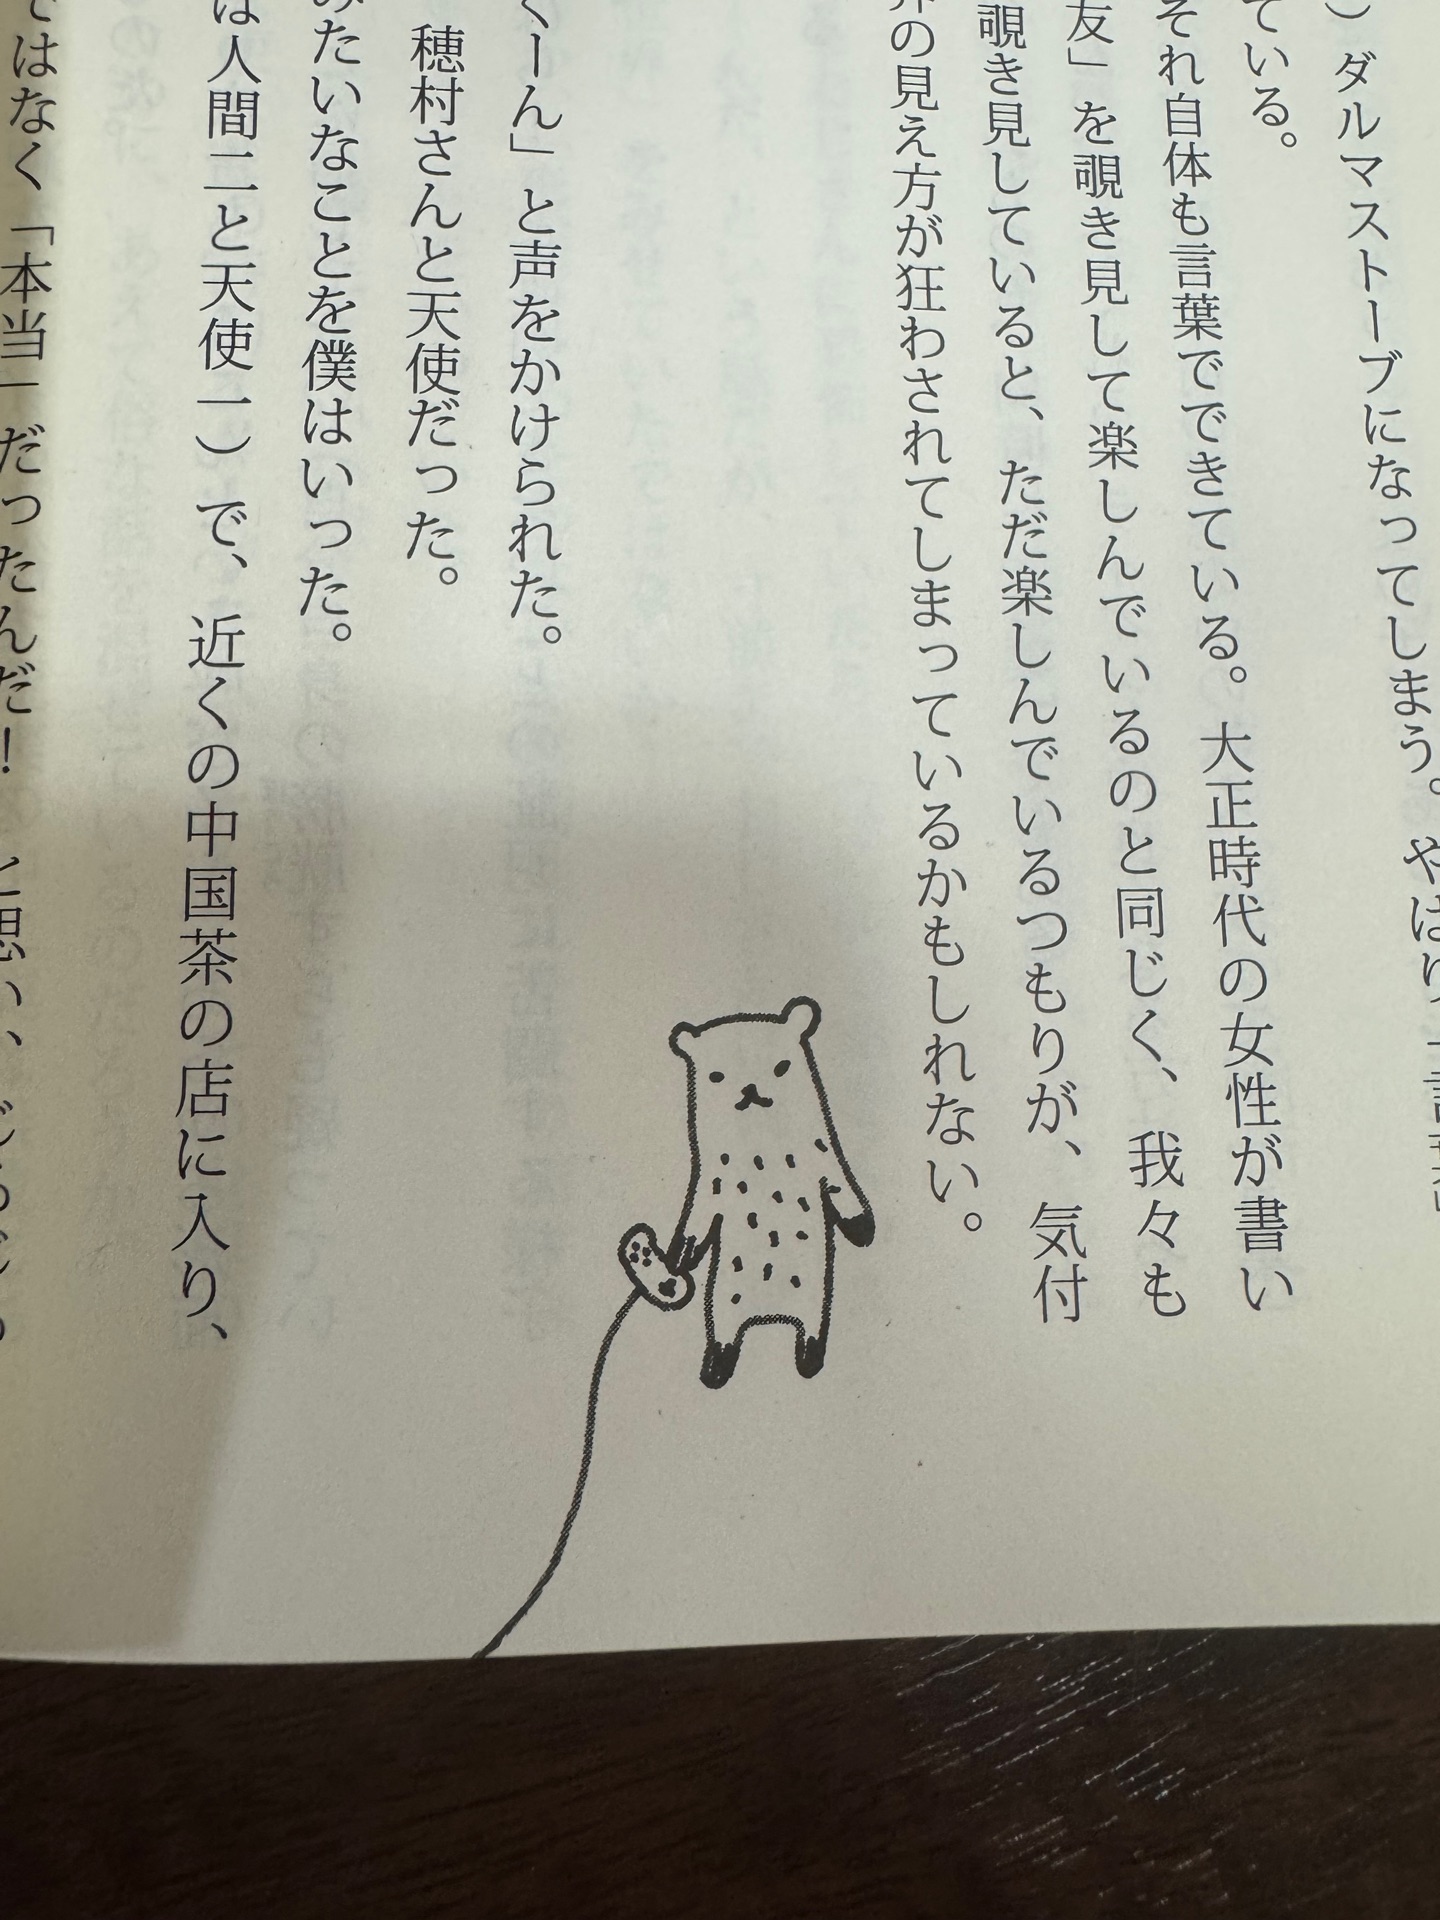 ）ダルマストーブになってしまう。やはり「言葉」
ている。
それ自体も言葉でできている。大正時代の女性が書い
友」を覗き見して楽しんでいるのと同じく、我々も
覗き見していると、ただ楽しんでいるつもりが、気付
界の見え方が狂わされてしまっているかもしれない。
くーん」と声をかけられた。
穂村さんと天使だった。
みたいなことを僕はいった。
は人間二と天使一）で、近くの中国茶の店に入り、
ではなく「本当」だったんだ！と思い、